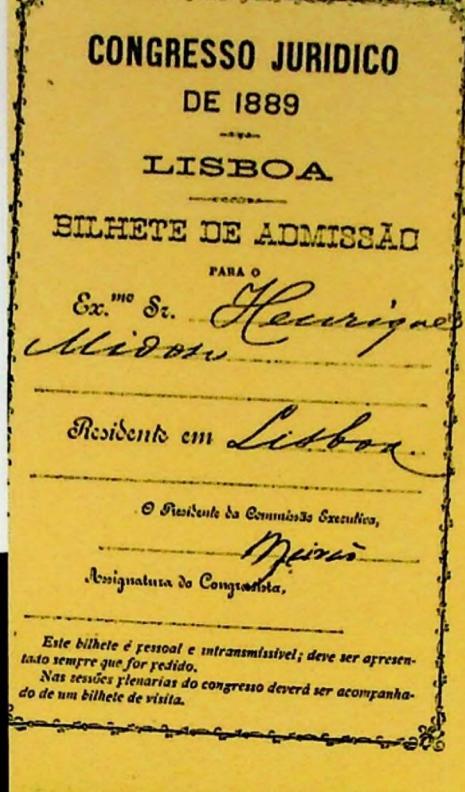 CONGRESSO JURIDICO
DE 1889
LISBOA
BILHETE DE ADMISSÃO
PARA O
Ex.mo Sr. Henrique
Midosi
Residente em Lisboa
O Presidente da Commissão Executiva,
Assignatura do Congressista,
Este bilhete é pessoal e intransmissivel; deve ser apresen-
tado sempre que for pedido.
Nas sessões plenarias do congresso deverá ser acompanha-
do de um bilhete de visita.